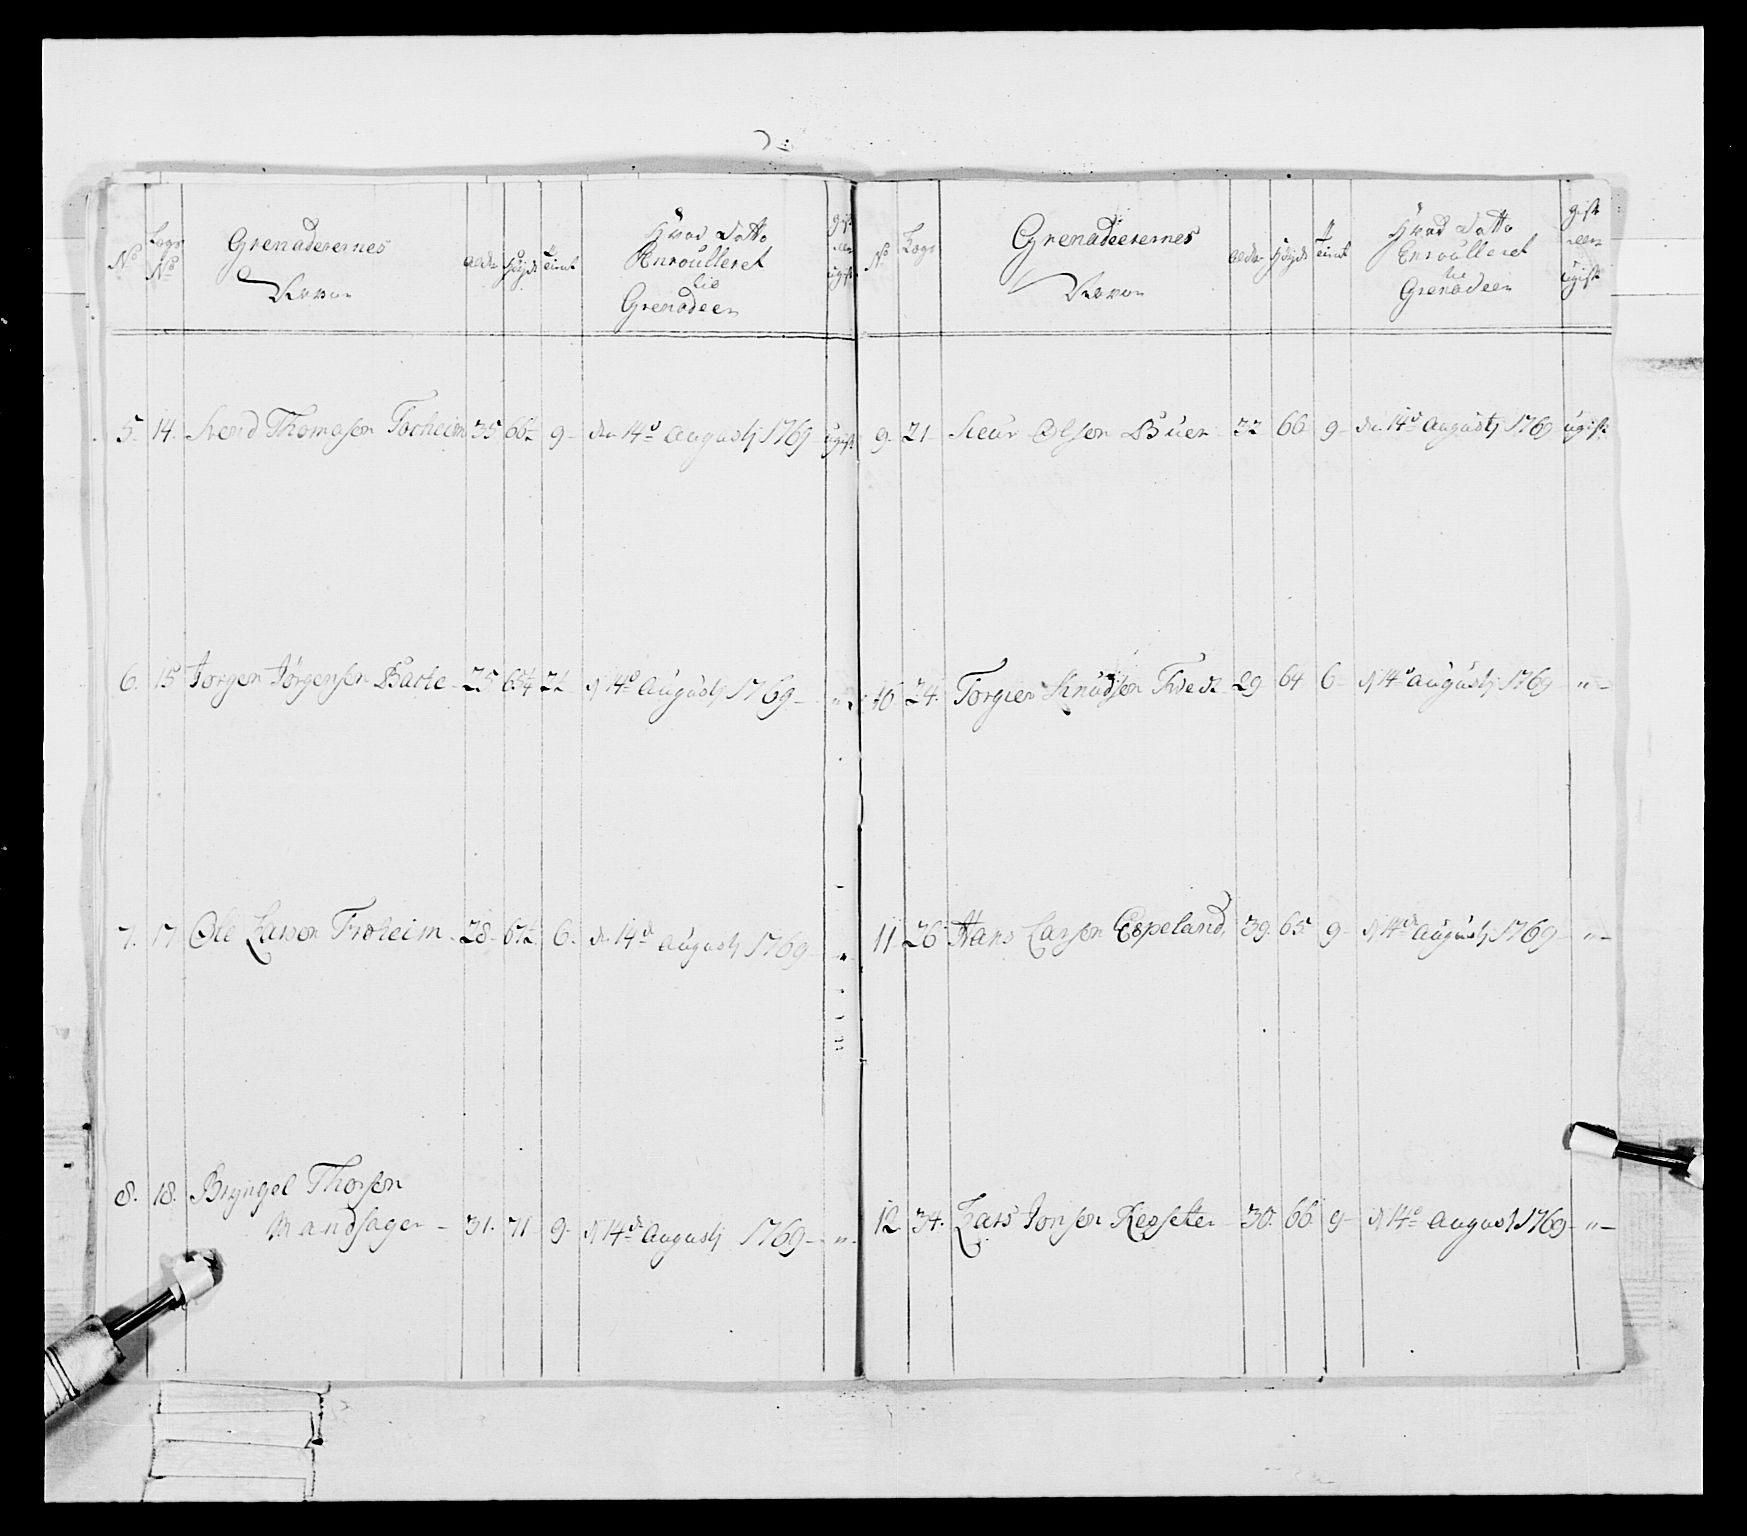 No
Lags
No
Grenaderernes
Navn
Alder
Höyde
Tienst
Hvad Datto
Enroulleret
til
Grenadeer
gift
eller
ugift
5. 14. Svend Thomasen 35 66½ 9 den 14de Augustj 1769 ugift
6. 15 Jörgen Jörgensen 25 65¼ d 14de Augustj 1769 - "
7. 17 Ole Larsen Froheim 28 67½ 6. d 14de Augustj 1769 - "
8. 18. Bryngel Thorsen
Mandsager - 31. 71 9 d 14de Augustj 1769 - "
No
Lags
Grenadeerernes
Navn
Alder
Höyde
Tienst
Hvad Datto
Enroulleret
til
Grenadeer
gift
eller
ugift
9. 21 Olsen Buer 32 66 9 den 14de Augustj 1769 ugift
10. 24. Torgier Knudsen 29 64 6 d 14de Augustj 1769 - "
11 26 Hans Larsen Espeland 39. 65 9 d 14de Augustj 1769 - "
12 34. Lars Jonsen Reqseter 30. 66 9 d 14de August 1769 - "